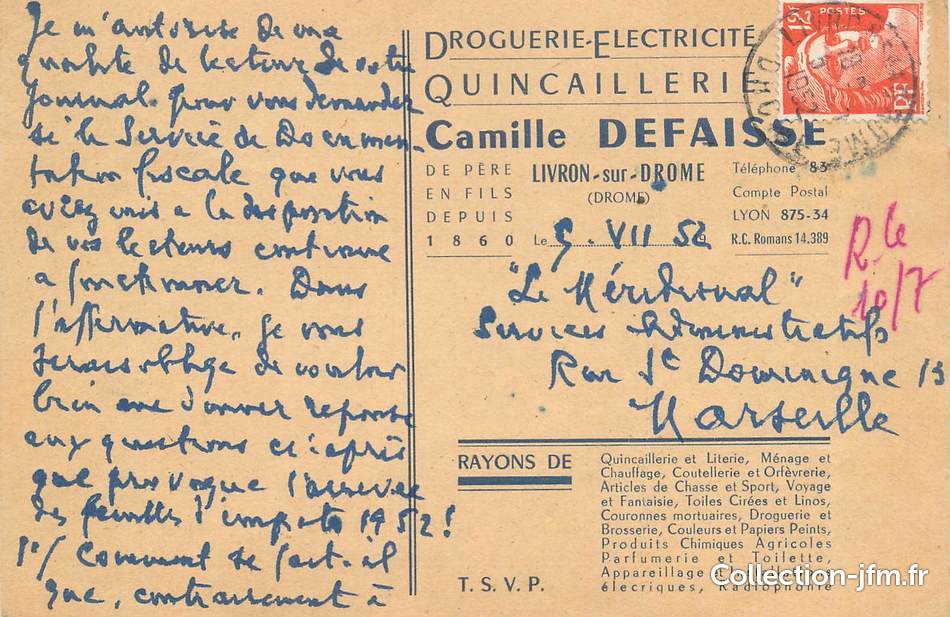 Je m'autorise de ma
qualité de lecteur de votre
Journal, pour vous demander
si le Service de Documen-
tation fiscale que vous
aviez mis a la disposition
de vos lecteurs continue
a fonctionner. Dans
l'affirmative, je vous
serais oblige de vouloir
bien me donner reponse
aux questions ci-après
que provoque l'arrivée
des feuilles d'impots 1952!
1°/ Comment se fait-il
que, contrairement à
DROGUERIE-ELECTRICITÉ
QUINCAILLERIE
Camille DEFAISSE
DE PÈRE
EN FILS
DEPUIS
1860
LIVRON-sur-DROME
(DROME)
Téléphone 83
Compte Postal
LYON 875-34
R.C. Romans 14.389
Le 9. VII 52
R. le
10/7
"Le Méridional"
Services Administratifs
Rue St Dominique 15
Marseille
RAYONS DE
Quincaillerie et Literie, Ménage et
Chauffage, Coutellerie et Orfèvrerie,
Articles de Chasse et Sport, Voyage
et Fantaisie, Toiles Cirées et Linos,
Couronnes mortuaires, Droguerie et
Brosserie, Couleurs et Papiers Peints,
Produits Chimiques Agricoles
Parfumerie et Toilette,
Appareillage et
électriques, Radiophonie
T.S.V.P.
POSTES
RF
Collection-jfm.fr